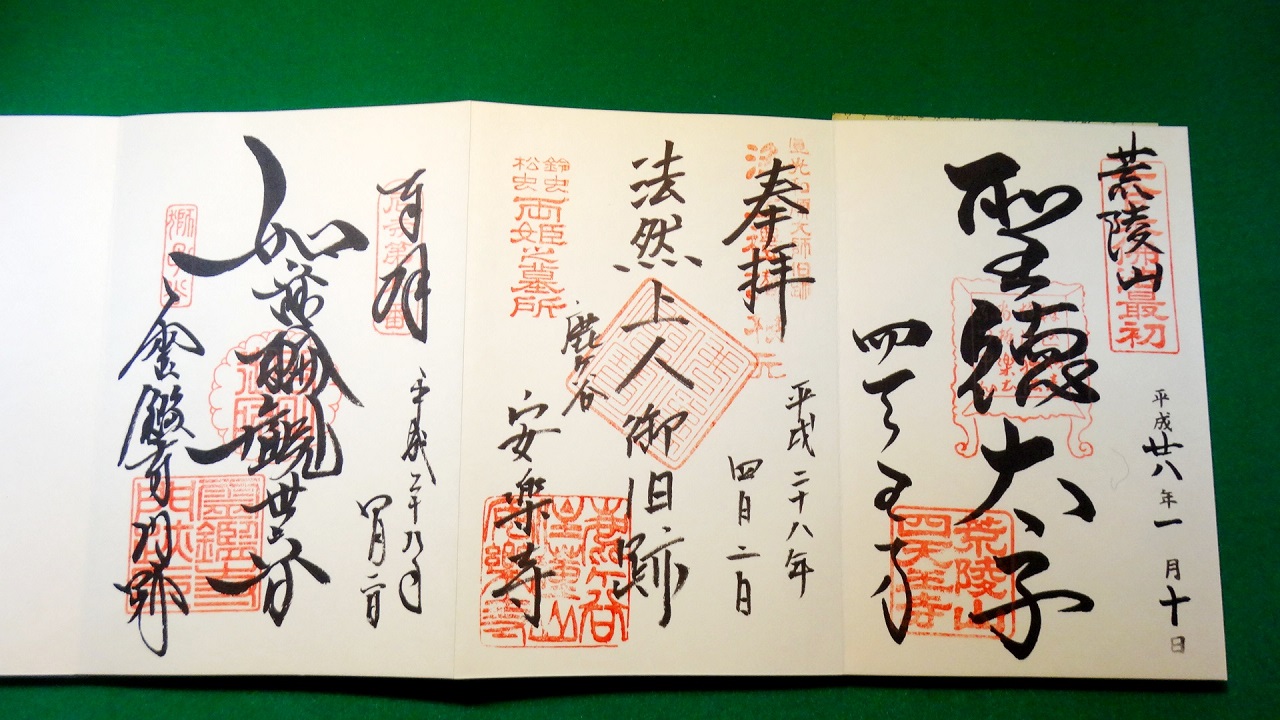 荒陵山
大日本佛法最初
聖徳太子
四天王寺
荒陵山
四天王寺
平成廿八年一月十日
奉拝
法然上人御旧跡
鈴虫
松虫
両姫之墓所
鹿ヶ谷
安楽寺
平成二十八年
四月二日
奉拝
如意輪観世音
霊鑑寺門跡
霊鑑寺
門跡
平成二十八年
四月二日